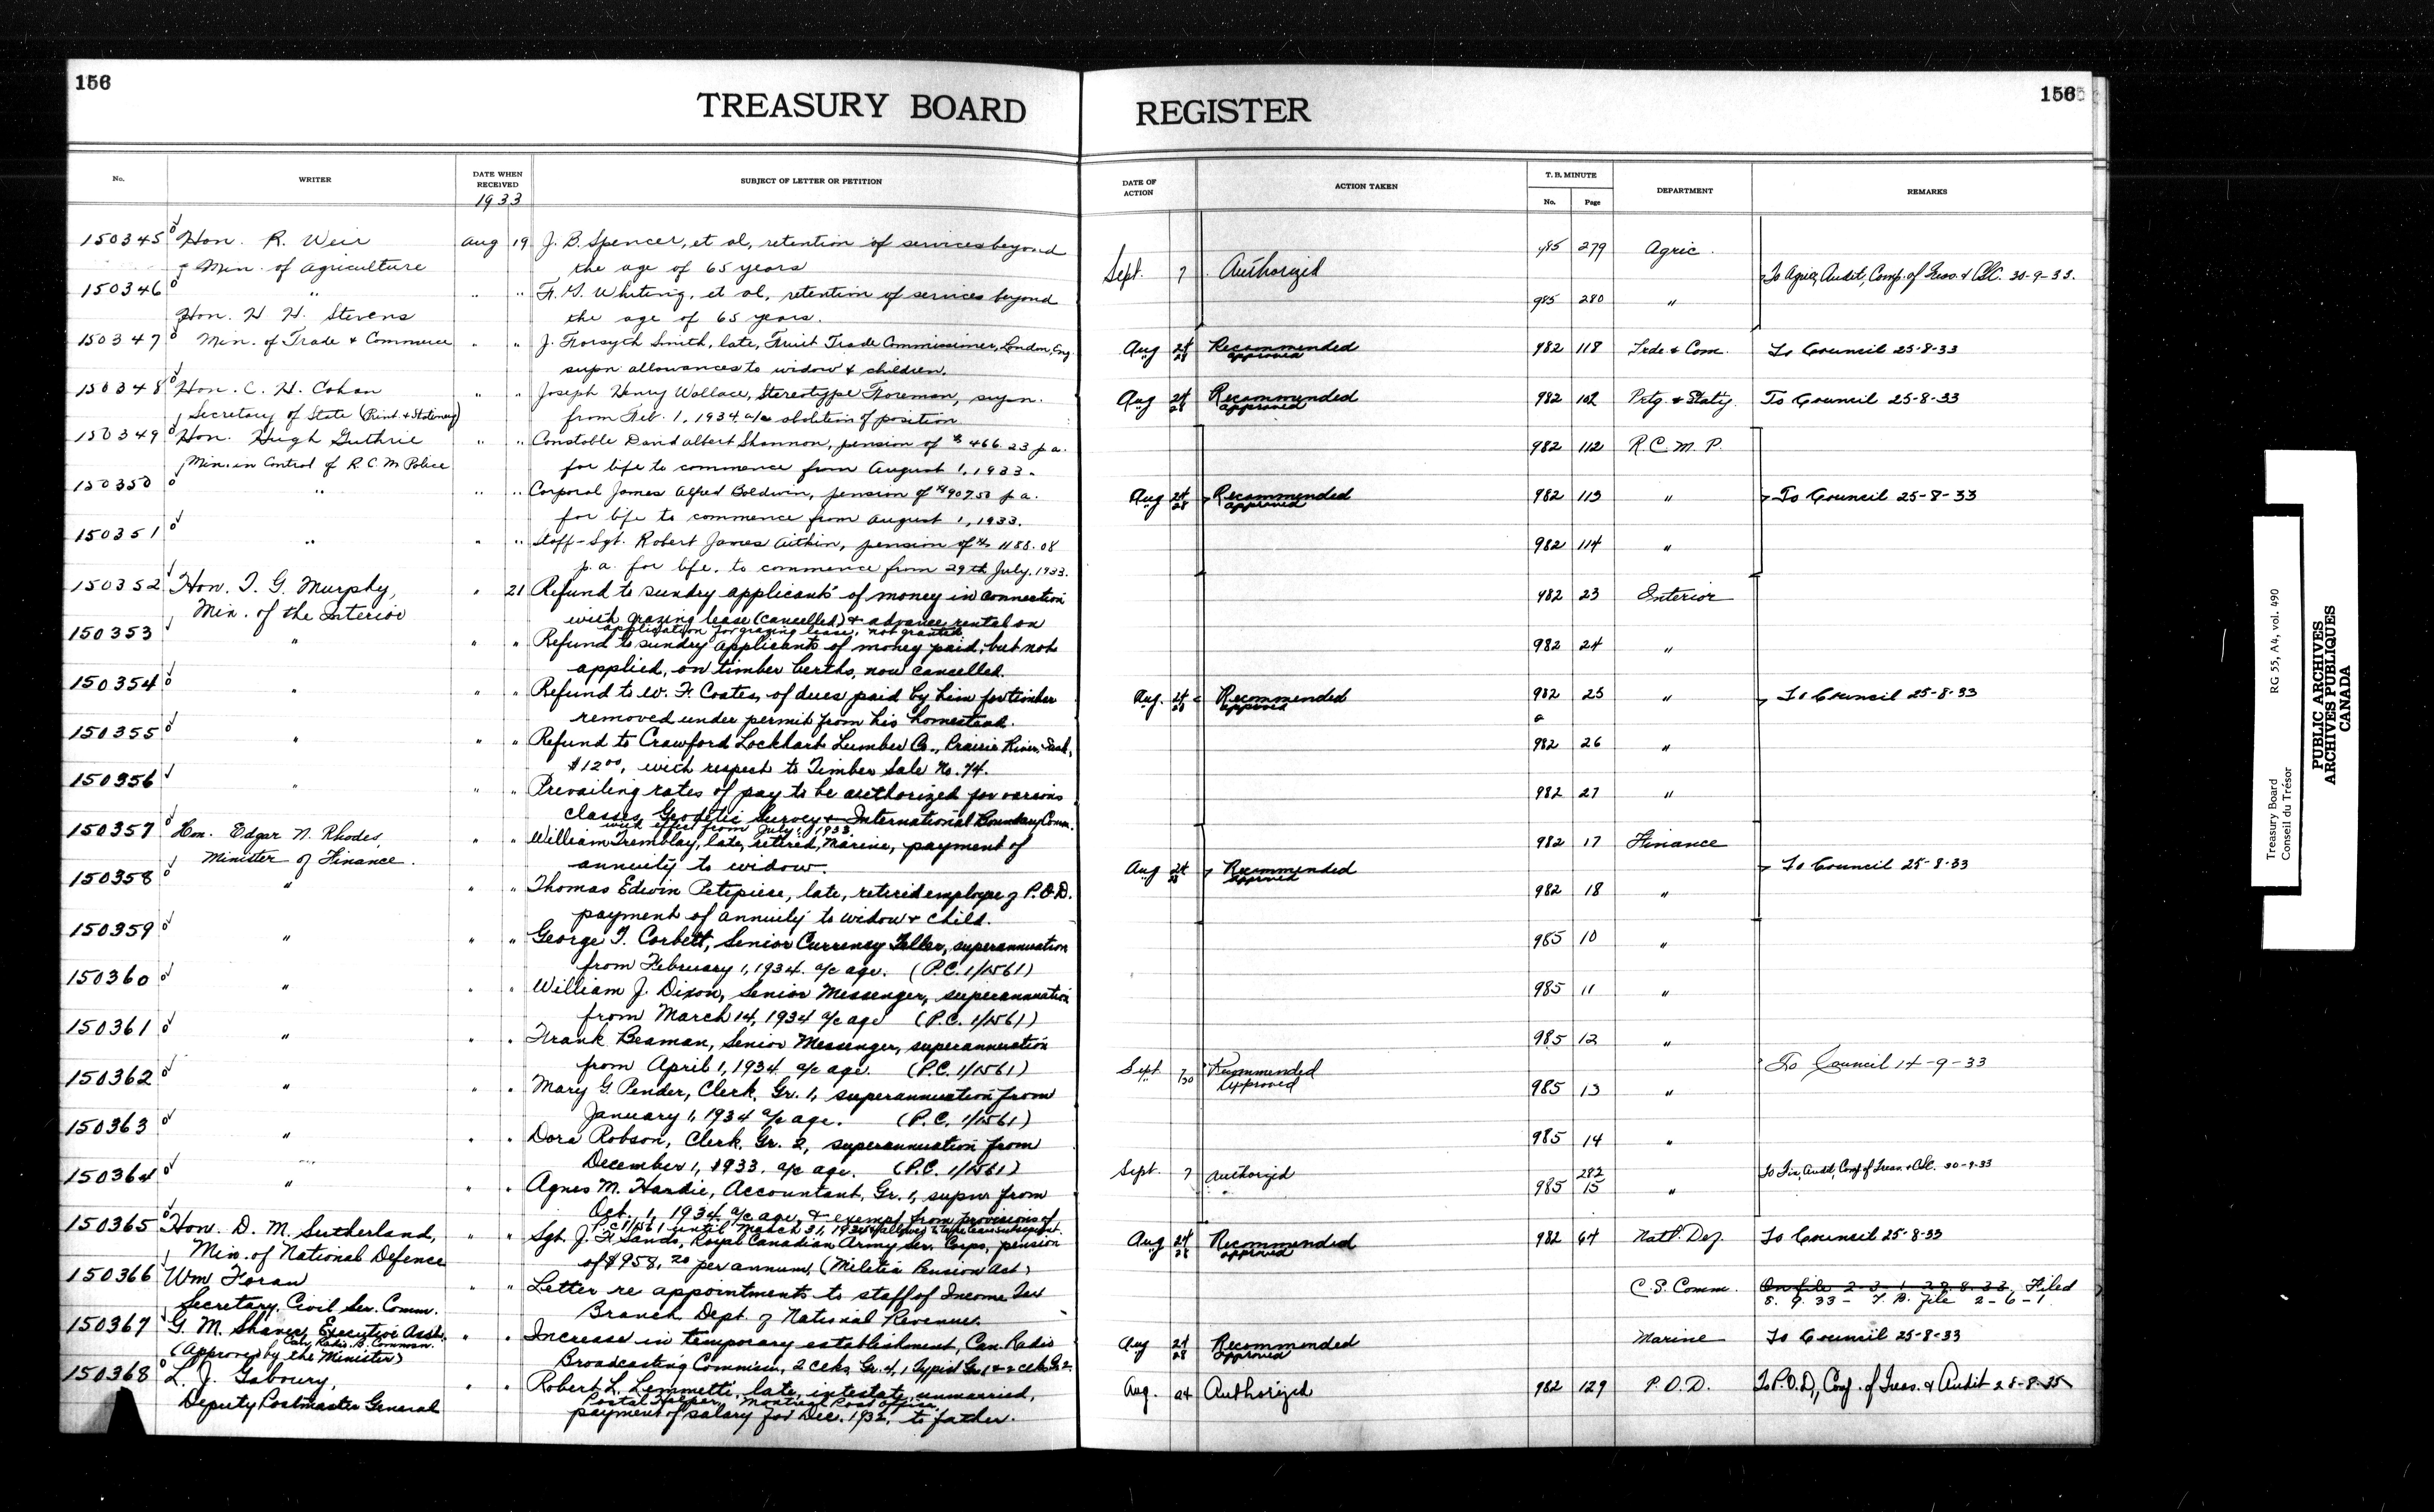 156
TREASURY BOARD REGISTER
156
No. WRITER DATE WHEN RECEIVED SUBJECT OF LETTER OR PETITION DATE OF ACTION ACTION TAKEN T. B. MINUTE No. Page DEPARTMENT REMARKS
1933
150345 Hon. R. Weir Aug 19 J. B. Spencer, et al, retention of services beyond 985 279 Agric.
Min. of Agriculture the age of 65 years Sept. 7 Authorized To Agric, Audit, Comp. of Treas. & CSC. 30-9-33.
150346 " " " F. G. Whiting, et al, retention of services beyond 985 280 "
Hon. H. H. Stevens the age of 65 years.
150347 Min. of Trade & Commerce " " J. Forsyth Smith, late, Fruit Trade Commissioner, London, Eng. Aug 24 Recommended 982 118 Trde. & Com. To Council 25-8-33
supn allowances to widow & children. " 28 approved
150348 Hon. C. H. Cahan " " Joseph Henry Wallace, Stereotype Foreman, supn. Aug 24 Recommended 982 102 Prtg. & Staty. To Council 25-8-33
Secretary of State (Print. & Stationery) from Feb. 1, 1934, a/c abolition of position " 28 approved
150349 Hon. Hugh Guthrie " " Constable David Albert Shannon, pension of $466.23 p.a. 982 112 R.C.M.P.
Min. in Control of R.C.M Police for life to commence from August 1, 1933.
150350 " " " Corporal James Alfred Boldwin, pension of $907.50 p.a. Aug 24 Recommended 982 113 " To Council 25-8-33
for life to commence from August 1, 1933. " 28 approved
150351 " " " Staff-Sgt. Robert James Aitkin, pension of $1188.08 982 114 "
p.a. for life, to commence from 29th July, 1933.
150352 Hon. T. G. Murphy, " 21 Refund to sundry applicants of money in connection 982 23 Interior
Min. of the Interior with grazing lease (cancelled) & advance rental on
application for grazing lease, not granted
150353 " " " Refund to sundry applicants of money paid, but not 982 24 "
applied, on timber berths, now cancelled.
150354 " " " Refund to W. F. Coates, of dues paid by him for timber Aug. 24 Recommended 982 25 " To Council 25-8-33
removed under permit from his homestead. 28 approved
150355 " " " Refund to Crawford Lockhart Lumber Co., Prairie River, Sask, 982 26 "
$12.00, with respect to Timber Sale No. 74.
150356 " " " Prevailing rates of pay to be authorized for various 982 27 "
classes, Geodetic Survey & International Boundary Comm.
with effect from July 1, 1933.
150357 Hon. Edgar N. Rhodes, " " William Tremblay, late, retired, Marine, payment of 982 17 Finance
Minister of Finance. annuity to widow. Aug 24 Recommended To Council 25-8-33
28 approved
150358 " " " Thomas Edwin Petepiece, late, retired employee of P.O.D. 982 18 "
payment of annuity to widow & child.
150359 " " " George T. Corbett, Senior Currency Teller, superannuation 985 10 "
from February 1, 1934. a/c age. (P.C. 1/1561)
150360 " " " William J. Dixon, Senior Messenger, superannuation 985 11 "
from March 14, 1934 a/c age (P.C. 1/1561)
150361 " " " Frank Beaman, Senior Messenger, superannuation 985 12 "
from April 1, 1934 a/c age. (P.C. 1/1561) Sept. 7 Recommended To Council 14-9-33
" 20 Approved
150362 " " " Mary G. Pender, Clerk, Gr. 1, superannuation from 985 13 "
January 1, 1934 a/c age. (P.C. 1/1561)
150363 " " " Dora Robson, Clerk, Gr. 2, superannuation from 985 14 "
December 1, 1933, a/c age. (P.C. 1/1561)
150364 " " " Agnes M. Hardie, Accountant, Gr. 1, supn from Sept. 7 Authorized 985 282 15 " To Fin, Audit, Comp of Treas. & CSC. 30-9-33
Oct. 1, 1934 a/c age, & exempt from provisions of
P.C. 1/1561 until March 31, 1934
150365 Hon. D. M. Sutherland, " " Sgt. J. F. Sands, Royal Canadian Army Ser. Corps, pension Aug 24 Recommended 982 64 Natl. Def. To Council 25-8-33
Min. of National Defence of $958.20 per annum, (Militia Pension Act) " 28 approved
150366 Wm Foran " " Letter re appointments to staff of Income Tax C.S. Comm. On file 2-3-1 29.8.33, Filed
Secretary, Civil Ser. Comm. Branch Dept. of National Revenue. 5. 9. 33 - T. B. file 2-6-1
150367 G. M. Shaver, Executive Asst. " " Increase in temporary establishment, Can. Radio Aug 24 Recommended Marine To Council 25-8-33
Can. Radio B. Common.
(Approved by the Minister) Broadcasting Common, 2 clks, Gr. 4, 1 Typist Gr. 1 & 2 clks Gr. 2. 28 approved
150368 L. J. Gaboury, " " Robert L. Lemmetti, late, intestate, unmarried, Aug. 24 Authorized 982 129 P.O.D. To P.O.D, Comp. of Treas. & Audit
Deputy Postmaster General Postal Helper, Montreal Post Office,
payment of salary for Dec. 1932, to father.
Treasury Board RG 55, A4, vol. 490
Conseil du Trésor
PUBLIC ARCHIVES
ARCHIVES PUBLIQUES
CANADA